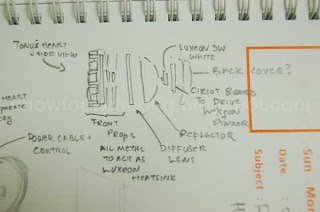 TONY'S HEART
SIDE VIEW
LUXEON 5W
WHITE
BACK COVER?
CIRCUIT BOARD
TO DRIVE
LUXEON
DIMMER
HEART
FRONT
PROPS
REFRACTOR
POWER CABLE +
CONTROL
ALL METAL
TO ACT AS
LUXEON
HEATSINK
DIFFUSER
LENS
Sun Mon
Date :
Subject :